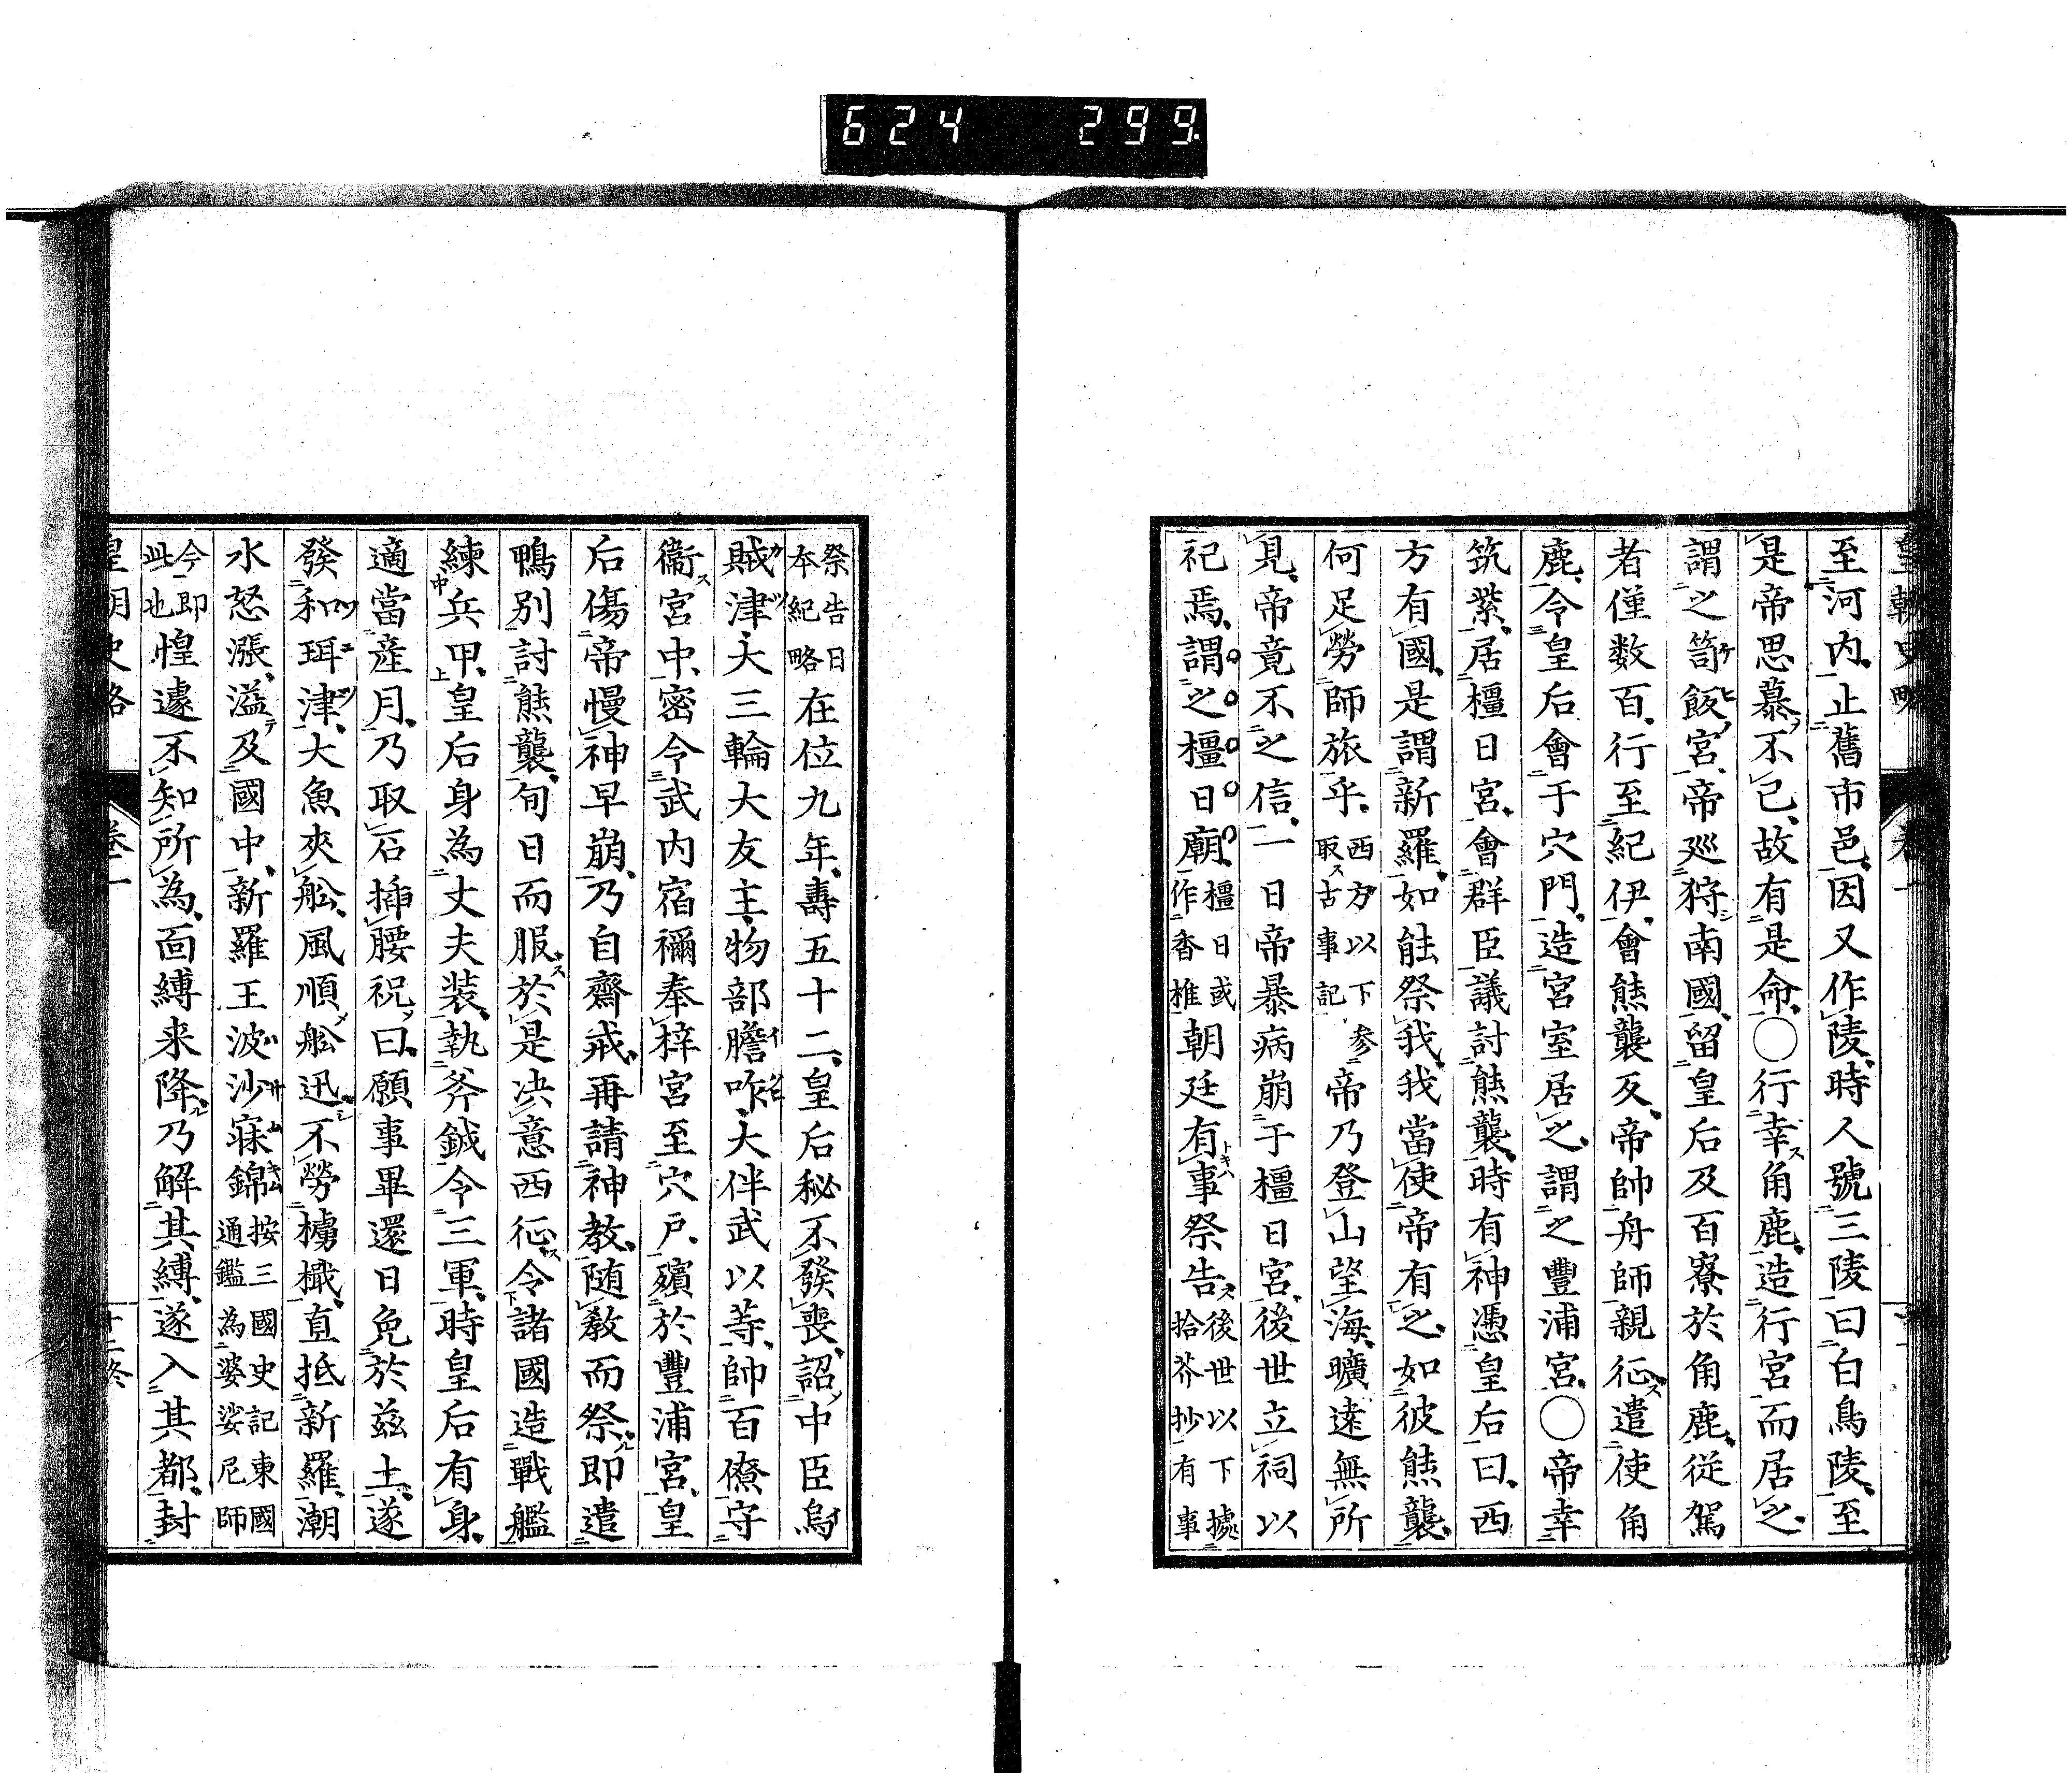 624 299
皇朝史略 卷一
至河内止舊市邑因又作陵時人號三陵曰白鳥陵至
是帝思慕不已故有是命○行幸角鹿造行宮而居之
謂之笥飯宮帝巡狩南國留皇后及百寮於角鹿從駕
者僅数百行至紀伊會熊襲反帝帥舟師親征遣使角
鹿令皇后會于穴門造宮室居之謂之豐浦宮○帝幸
筑紫居橿日宮會群臣議討熊襲時有神憑皇后曰西
方有國是謂新羅如能祭我我當使帝有之如彼熊襲
何足勞師旅乎西方以下参取古事記帝乃登山望海曠遠無所
見帝竟不之信一日帝暴病崩于橿日宮後世立祠以
祀焉謂之橿日廟橿日或作香椎朝廷有事祭告後世以下據拾芥抄有事
祭告日本紀略在位九年壽五十二皇后秘不發喪詔中臣烏
賊津大三輪大友主物部膽咋大伴武以等帥百僚守
衞宮中密令武内宿禰奉梓宮至穴戸殯於豐浦宮皇
后傷帝慢神早崩乃自齋戒再請神教随敎而祭即遣
鴨別討熊襲旬日而服於是决意西征令諸國造戰艦
練兵甲皇后身為丈夫装執斧鉞令三軍時皇后有身
適當產月乃取石挿腰祝曰願事畢還日免於茲土遂
發和珥津大魚夾舩風順舩迅不勞櫓檝直抵新羅潮
水怒漲溢及國中新羅王波沙寐錦按三國史記東國通鑑為婆娑尼師
今即此也惶遽不知所為面縛来降乃解其縛遂入其都封
皇朝史略 卷一 十二終